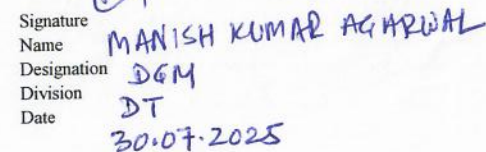 Signature
Name MANISH KUMAR AGARWAL
Designation DGM
Division DT
Date 30.07.2025